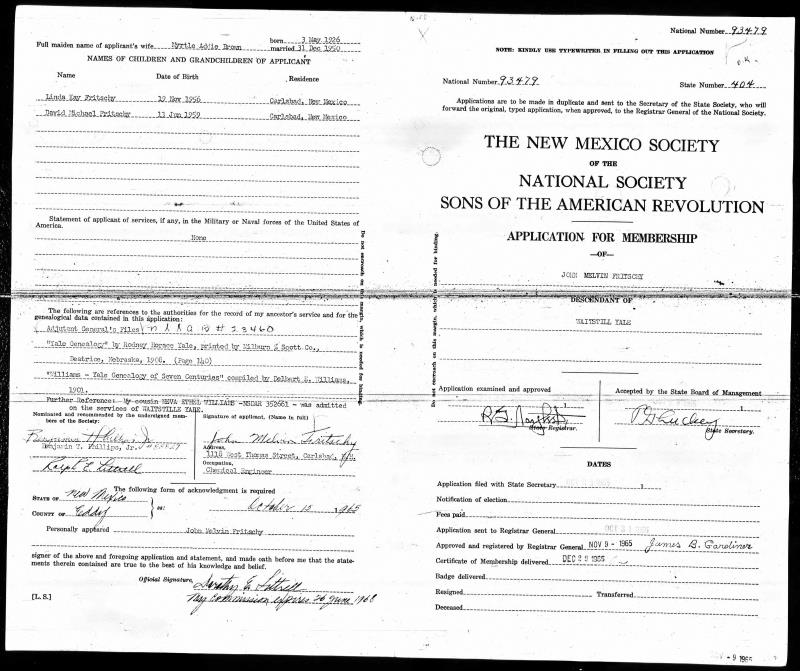 Full maiden name of applicant's wife Myrtle Addie Brown born 3 May 1926
married 31 Dec 1950
NAMES OF CHILDREN AND GRANDCHILDREN OF APPLICANT
Name Date of Birth Residence
Linda Kay Fritschy 19 Nov 1956 Carlsbad, New Mexico
David Michael Fritschy 13 Jun 1959 Carlsbad, New Mexico
Statement of applicant of services, if any, in the Military or Naval forces of the United States of
America.
None
The following are references to the authorities for the record of my ancestor's service and for the
genealogical data contained in this application:
Adjutant General's Files
"Yale Genealogy" by Rodney Horace Yale, printed by Milburn & Scott Co.,
Beatrice, Nebraska, 1908. (Page 140)
"Williams - Yale Genealogy of Seven Centuries" compiled by Delbert E. Williams,
1901.
Further Reference: My cousin NEVA ETHEL WILLIAMS -NSDAR 352661 - was admitted
on the services of WAITSTILL YALE.
Nominated and recommended by the undersigned members
of the Society:
Benjamin T. Phillips, Jr.
Ralph E. Littrell
Signature of applicant. (Name in full)
John Melvin Fritschy
Address,
1118 West Thomas Street, Carlsbad, N.M.
Occupation,
Chemical Engineer
The following form of acknowledgment is required
STATE OF New Mexico
COUNTY OF Eddy
ss: October 10 1965
Personally appeared John Melvin Fritschy
signer of the above and foregoing application and statement, and made oath before me that the statements
therein contained are true to the best of his knowledge and belief.
Official Signature, Dorothy E. Littrell
My commission expires 26 June 1968
[L. S.]
Do not encroach on this margin, which is needed for binding.
National Number 93479
NOTE: KINDLY USE TYPEWRITER IN FILLING OUT THIS APPLICATION
O.K.
National Number 93479 State Number 404
Applications are to be made in duplicate and sent to the Secretary of the State Society, who will
forward the original, typed application, when approved, to the Registrar General of the National Society.
THE NEW MEXICO SOCIETY
OF THE
NATIONAL SOCIETY
SONS OF THE AMERICAN REVOLUTION
APPLICATION FOR MEMBERSHIP
—OF—
JOHN MELVIN FRITSCHY
DESCENDANT OF
WAITSTILL YALE
Do not encroach on this margin, which is needed for binding.
Application examined and approved
State Registrar.
Accepted by the State Board of Management
State Secretary.
DATES
Application filed with State Secretary
Notification of election
Fees paid
Application sent to Registrar General
Approved and registered by Registrar General NOV 9 - 1965 James B. Gardiner
Certificate of Membership delivered
Badge delivered
Resigned Transferred
Deceased